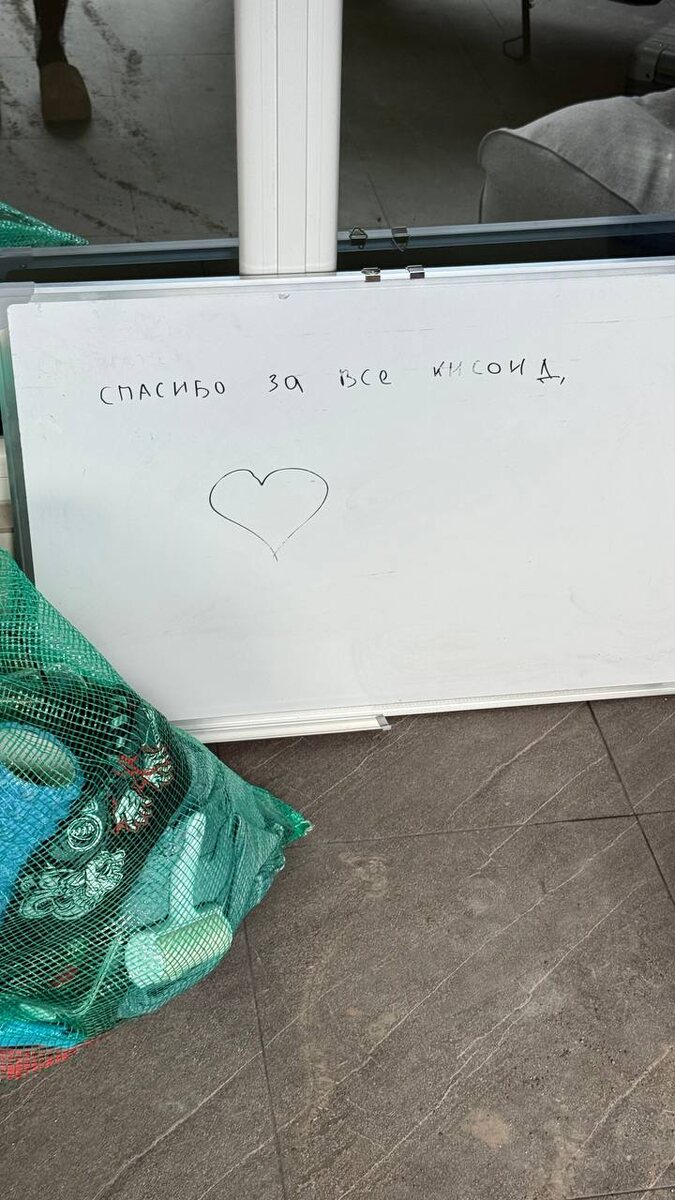 СПАСИБО ЗА ВСЕ КИСОИД,